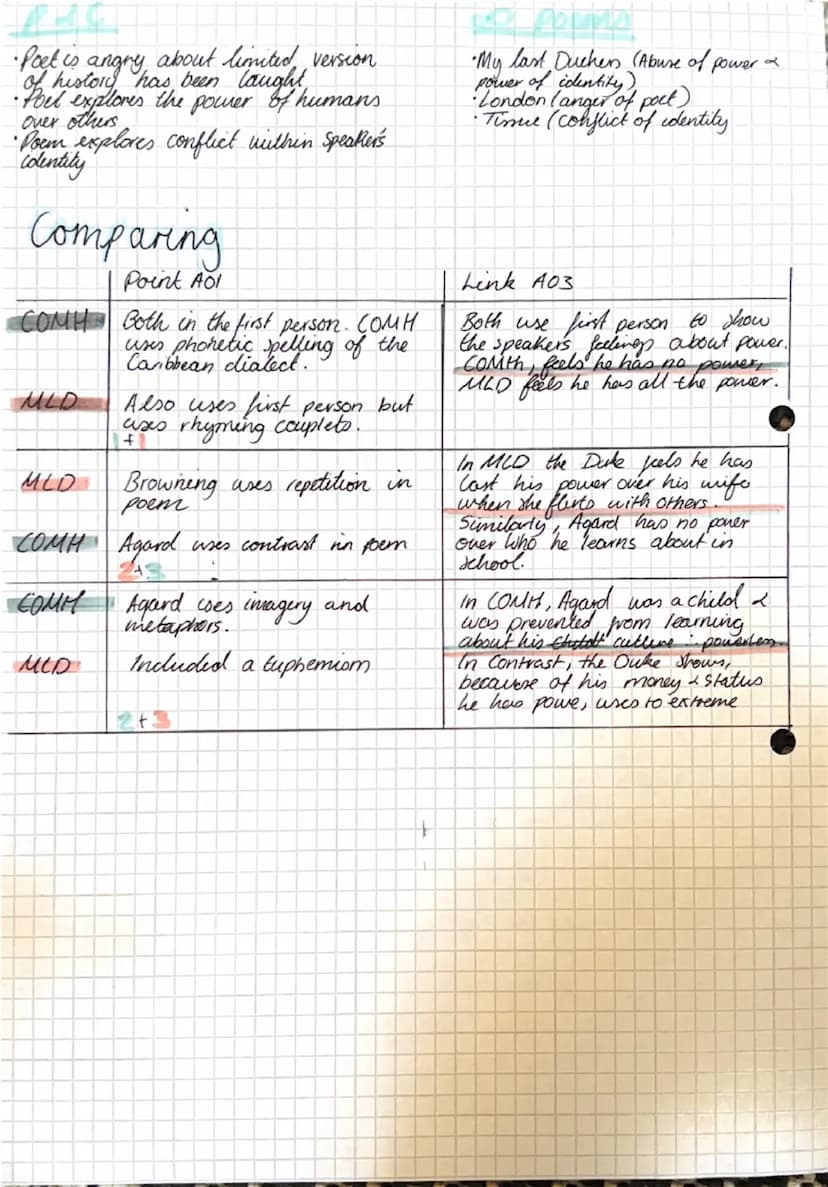 P+C
poems
·Poet is angry about limited version
of history has been taught
·Poet explores the power of humans
over others
·Poem explores conflict within speaker's
identity
·My last Duchess (Abuse of power &
power of identity)
·London (anger of poet)
·Tissue (conflict of identity
Comparing
Point AO1
Link AO3
COMH
Both in the first person. COMH
uses phonetic spelling of the
Caribbean dialect.
Both use first person to show
the speakers feelings about power.
COMH, feels he has no power,
MLD feels he has all the power.
MLD
Also uses first person but
uses rhyming couplets.
1+1
MLD
Browning uses repetition in
poem
In MLD the Duke feels he has
lost his power over his wife
when she flirts with others.
Similarly, Agard has no power
over who he learns about in
school.
COMH
Agard uses contrast in poem
2+3
COMH
Agard uses imagery and
metaphors.
In COMH, Agard was a child &
was prevented from learning
about his culture ∴ powerless.
In contrast, the Duke shows,
because of his money & status
he has powe, uses to extreme
MLD
Included a Euphemism
2+3